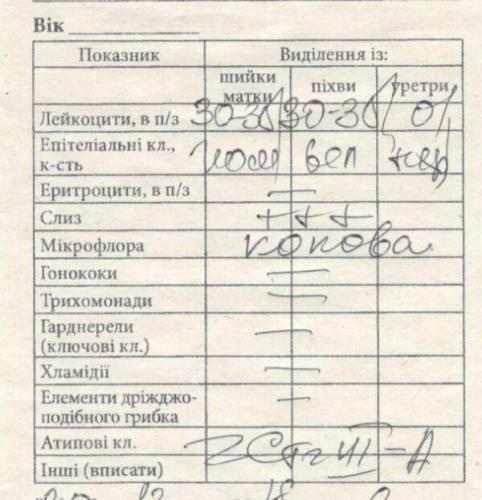 Вік
Показник Виділення із:
шийки матки піхви уретри
Лейкоцити, в п/з 30-35 30-35 0
Епітеліальні кл., к-сть
Еритроцити, в п/з —
Слиз +++
Мікрофлора кокова
Гонококи —
Трихомонади —
Гарднерели (ключові кл.) —
Хламідії —
Елементи дріжджо-
подібного грибка —
Атипові кл.
Інші (вписати)